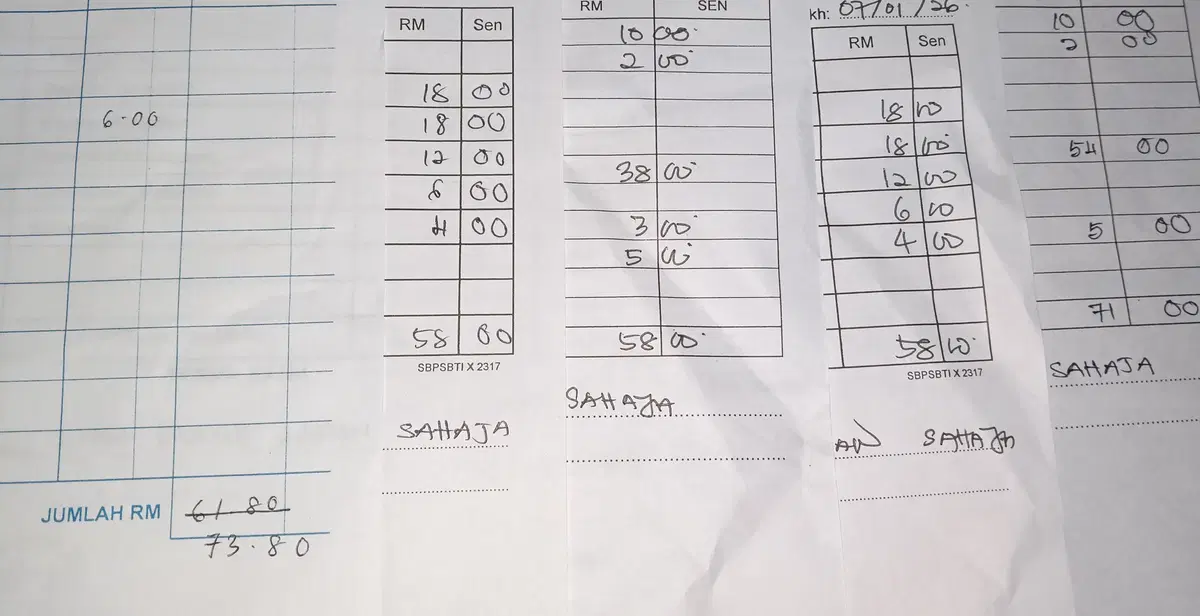 6.00
JUMLAH RM
61.80
73.80
RM Sen
18 00
18 00
12 00
6 00
4 00
58 00
SBPSBTI X 2317
SAHAJA
RM SEN
10 00
2 00
38 00
3 00
5 00
58 00
SAHAJA
kh: 07/01/26
RM Sen
18 00
18 00
12 00
6 00
4 00
58 00
SBPSBTI X 2317
SAHAJA
10 00
2 00
54 00
5 00
71 00
SAHAJA